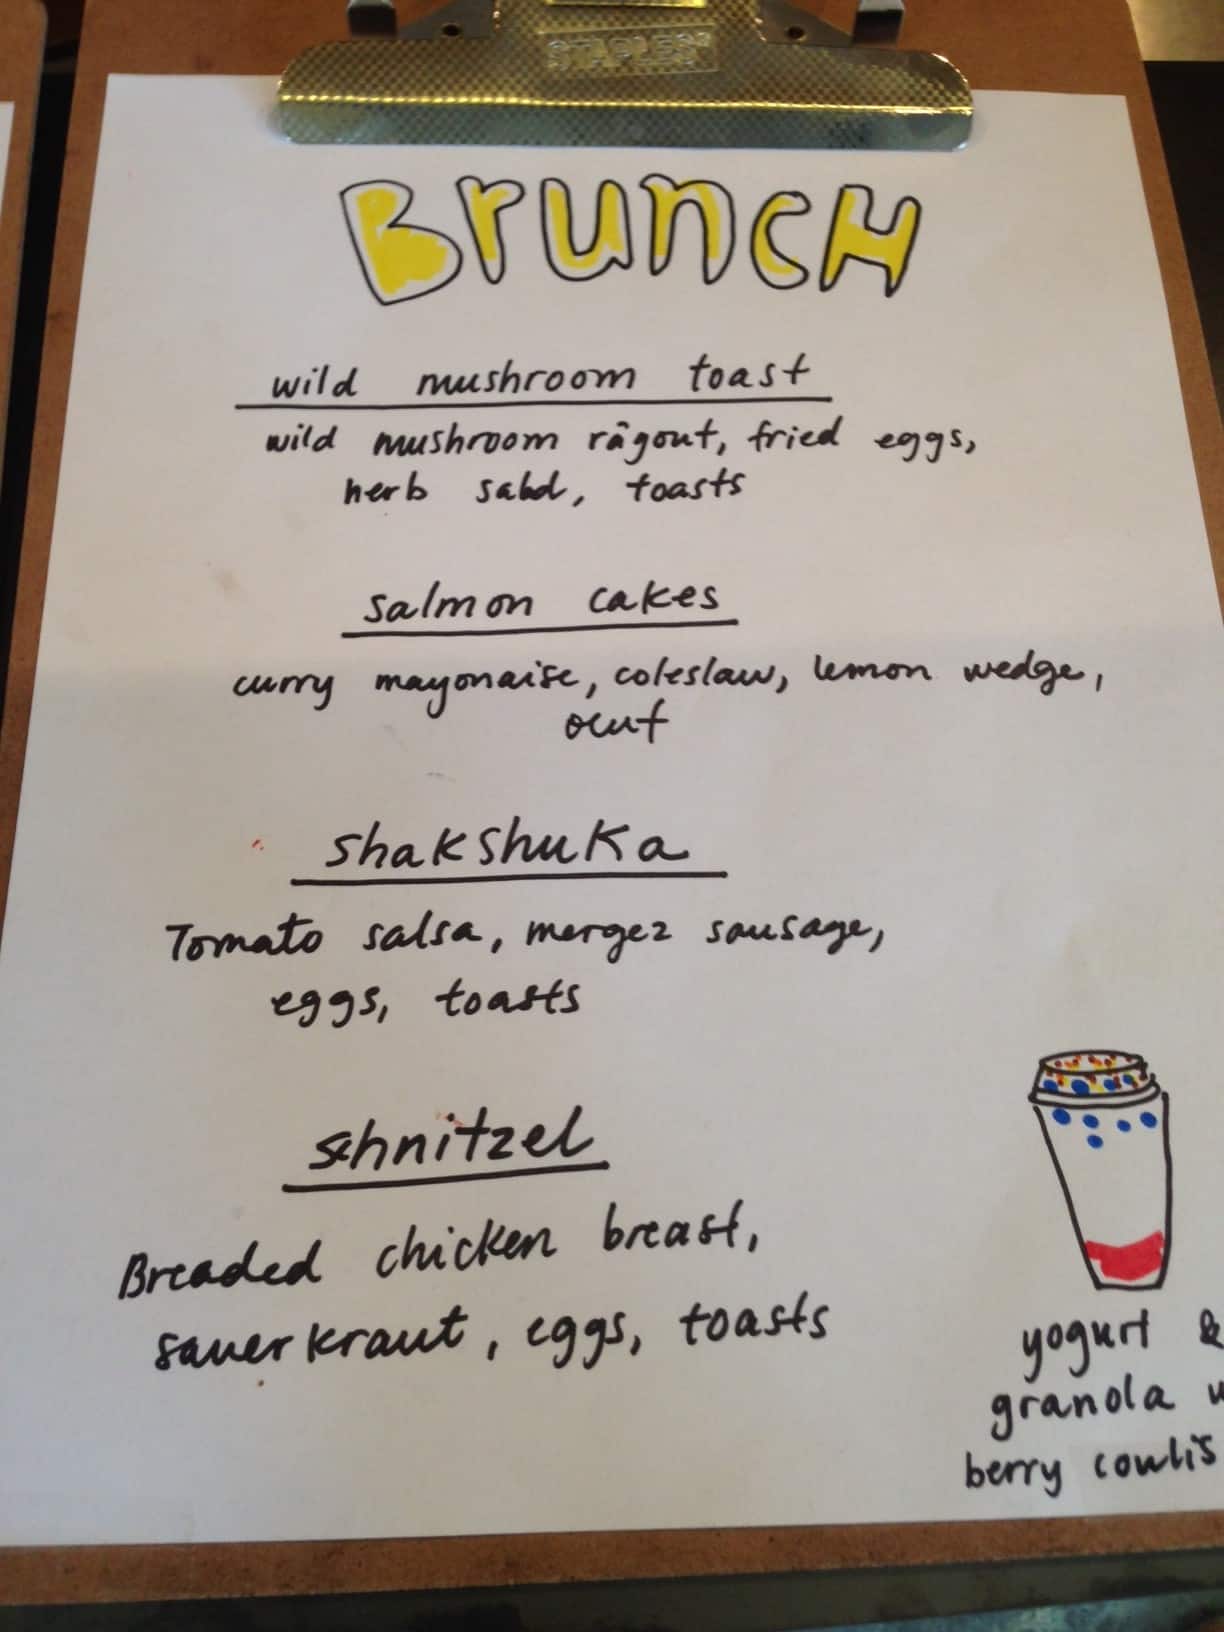 STAPLES
BrUnCH
wild mushroom toast
wild mushroom râgout, fried eggs,
herb salad, toasts
salmon cakes
curry mayonaise, coleslaw, lemon wedge,
oeuf
shakshuka
Tomato salsa, mergez sausage,
eggs, toasts
schnitzel
Breaded chicken breast,
sauerkraut, eggs, toasts
yogurt &
granola w
berry coulis